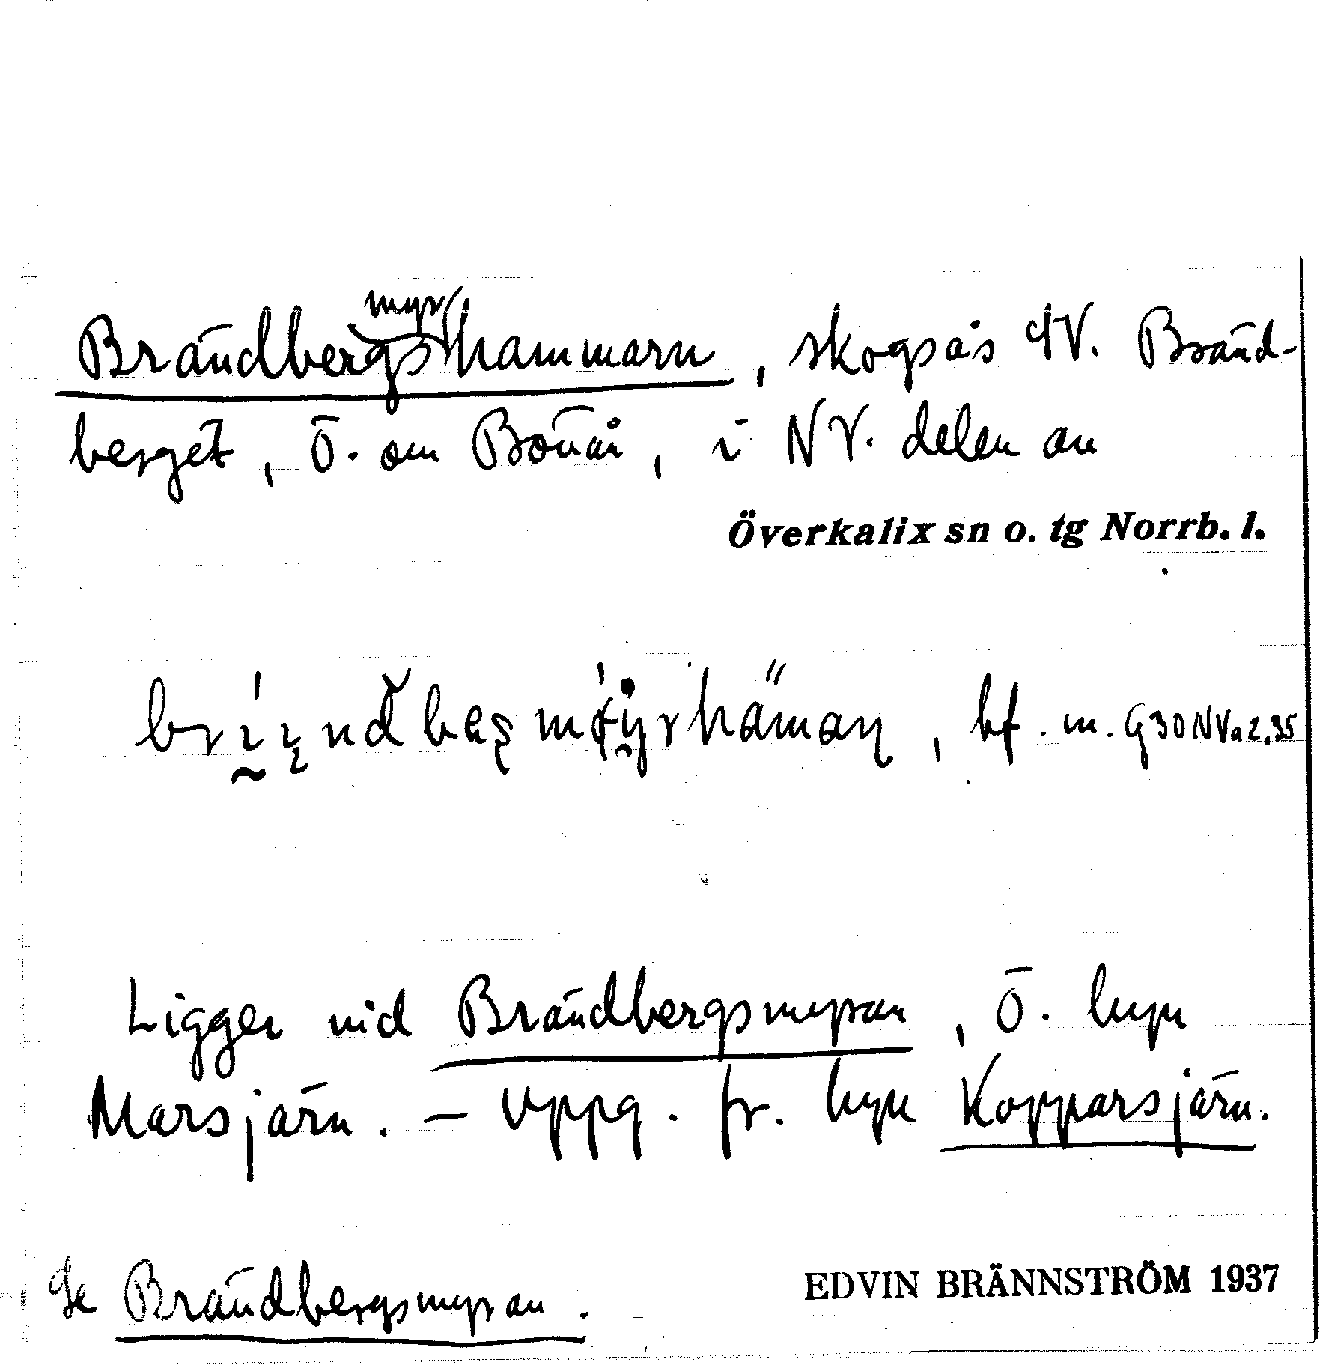 Brändbergsmyrhammarn, skogsås SV. Bränd-
berget, Ö. om Bönån, i NV. delen av
Överkalix sn o. tg Norrb. l.
bf. m. G30NVa2.35
Ligger vid Brändbergsmyran, Ö. byn
Marsjärn. – Uppg. fr. byn Kopparsjärn.
Se Brändbergsmyran.
EDVIN BRÄNNSTRÖM 1937